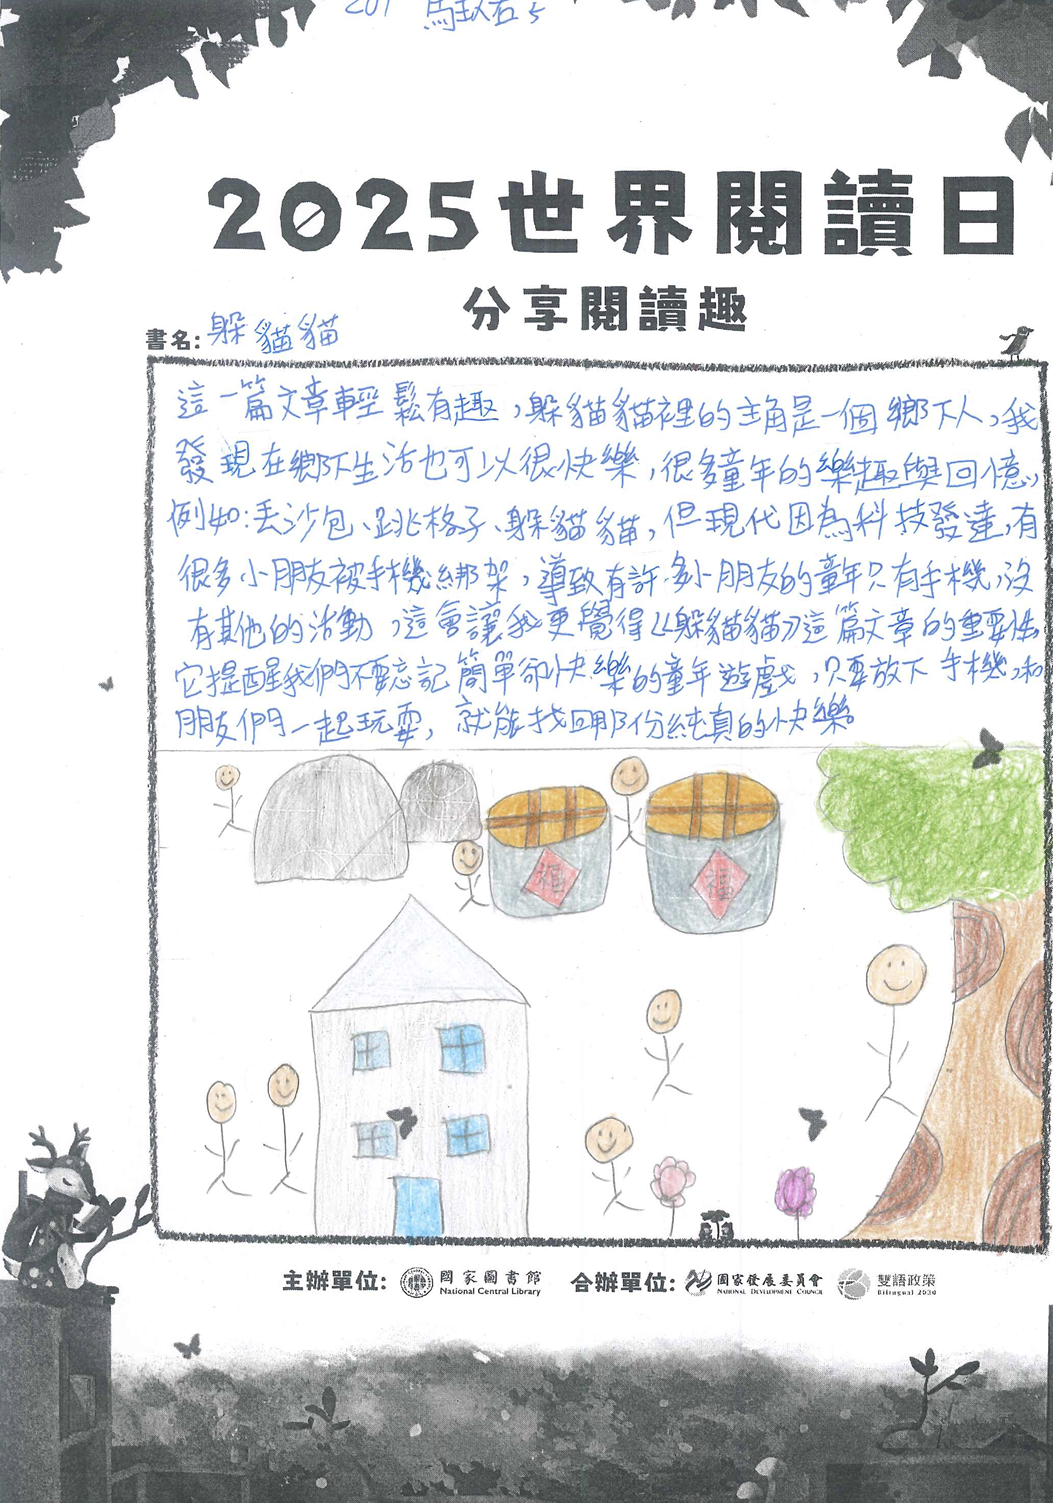 201 馬玖若 5
2025世界閱讀日
分享閱讀趣
書名: 躲貓貓
這一篇文章輕鬆有趣，躲貓貓裡的主角是一個鄉下人，我
發現在鄉下生活也可以很快樂，很多童年的樂趣與回憶，
例如:丟沙包、跳格子、躲貓貓，但現代因為科技發達，有
很多小朋友被手機綁架，導致有許多小朋友的童年只有手機，沒
有其他的活動，這會讓我更覺得《躲貓貓》這篇文章的重要性
它提醒我們不要忘記簡單卻快樂的童年遊戲，只要放下手機，和
朋友們一起玩耍，就能找回那份純真的快樂。
福 福
主辦單位: 國家圖書館 National Central Library 合辦單位: 國家發展委員會 National Development Council 雙語政策 Bilingual 2030